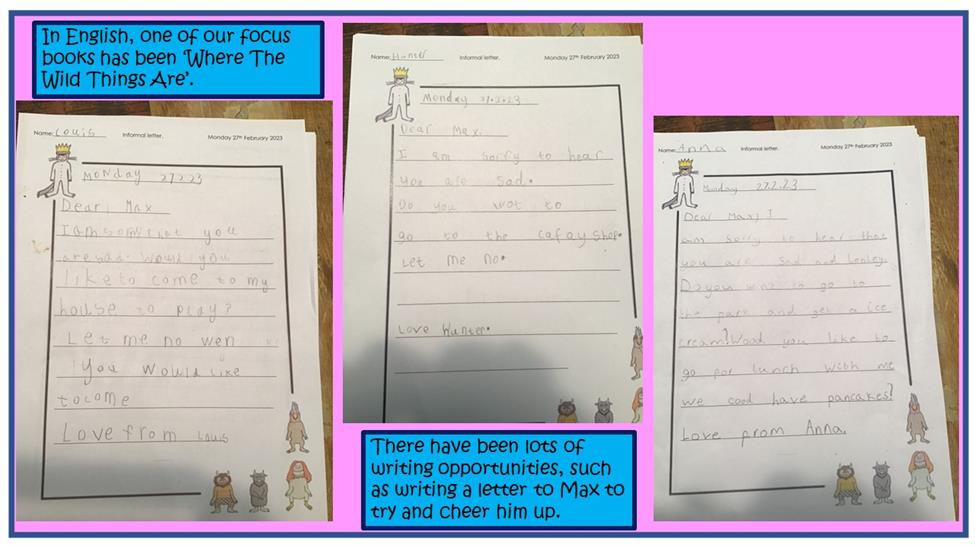 In English, one of our focus
books has been 'Where The
Wild Things Are'.
Name: Louis Informal letter. Monday 27th February 2023
MONday 27.2.23
Dear, Max
I am sorry that you
are sad. Would you
like to come to my
house to play?
Let me no wen
you would like
to come
Love from Louis
Name: Hunter Informal letter. Monday 27th February 2023
Monday 27.2.23
Dear Max.
I am sorry to hear
you are sad.
Do you wot to
go to the cafay shop.
Let me no.
Love Hunter.
Name: Anna Informal letter. Monday 27th February 2023
Monday 27.2.23
Dear Max, I
am sorry to hear that
you are sad and
Do you to go to
the park and get a ice
cream? Wood you like to
go for lunch with me
we cood have pancakes?
Love from Anna.
There have been lots of
writing opportunities, such
as writing a letter to Max to
try and cheer him up.